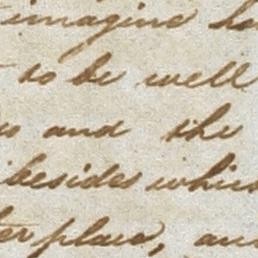 imagine
to be well
and the
besides which
place, an